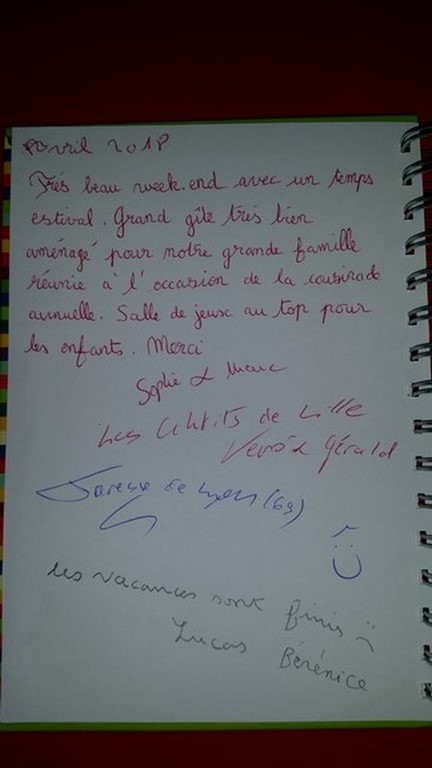 Avril 2018
Très beau week-end avec un temps
estival. Grand gîte très bien
aménagé pour notre grande famille
réunie à l'occasion de la cousinade
annuelle. Salle de jeux au top pour
les enfants. Merci
Sophie &
Les Chtits de Lille
Véro & Gérald
de Lyon (69)
les vacances sont finis
Lucas Bérénice